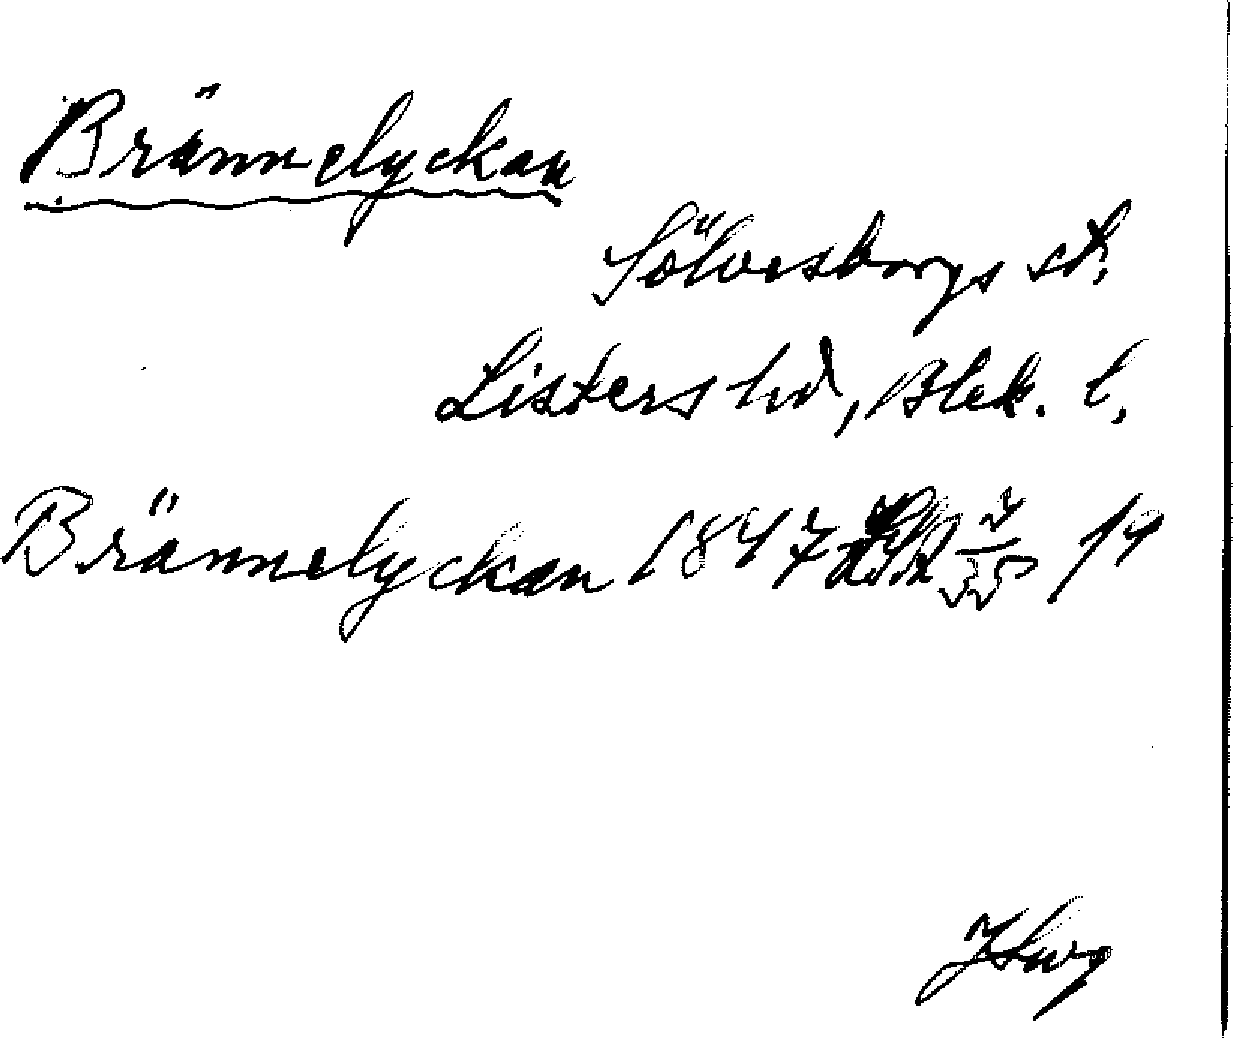 Brännelyckan
Sölvesborgs st.
Listers hd, Blek. l.
Brännelyckan 1847